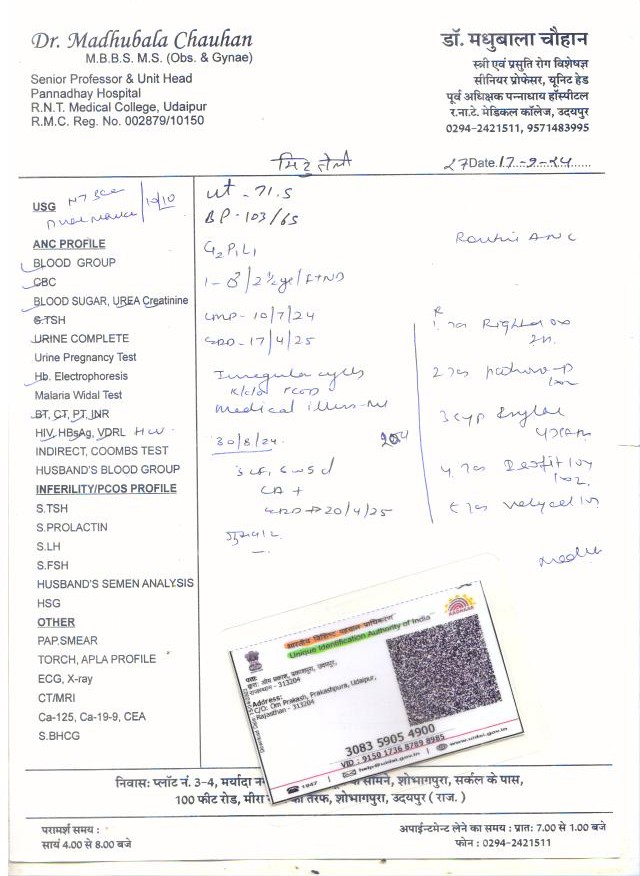 Dr. Madhubala Chauhan
M.B.B.S. M.S. (Obs. & Gynae)
Senior Professor & Unit Head
Pannadhay Hospital
R.N.T. Medical College, Udaipur
R.M.C. Reg. No. 002879/10150
डॉ. मधुबाला चौहान
स्त्री एवं प्रसुति रोग विशेषज्ञ
सीनियर प्रोफेसर, यूनिट हेड
पूर्व अधिक्षक पन्नाधाय हॉस्पीटल
र.ना.टे. मेडिकल कॉलेज, उदयपुर
0294-2421511, 9571483995
27 Date 17-9-24
USG
10/10
ANC PROFILE
BLOOD GROUP
CBC
BLOOD SUGAR, UREA Creatinine
S.TSH
URINE COMPLETE
Urine Pregnancy Test
Hb. Electrophoresis
Malaria Widal Test
BT, CT, PT, INR
HIV, HBsAg, VDRL HCV
INDIRECT, COOMBS TEST
HUSBAND'S BLOOD GROUP
INFERILITY/PCOS PROFILE
S.TSH
S.PROLACTIN
S.LH
S.FSH
HUSBAND'S SEMEN ANALYSIS
HSG
OTHER
PAP.SMEAR
TORCH, APLA PROFILE
ECG, X-ray
CT/MRI
Ca-125, Ca-19-9, CEA
S.BHCG
wt - 71.5
BP - 103/65
G2P1L1
1 - ♂ / 2½ yr / FTND
LMP - 10/7/24
EDD - 17/4/25
Irregular cycles
K/C/O PCOD
Medical illness - Nil
30/8/24
CA +
EDD → 20/4/25
Routine ANC
भारतीय विशिष्ट पहचान प्राधिकरण
Unique Identification Authority of India
AADHAAR
राजस्थान - 313204
Address:
C/O: Om Prakash, Prakashpura, Udaipur,
Rajasthan - 313204
3083 5905 4900
VID : 9150 1736 8789 8985
1947 | help@uidai.gov.in | www.uidai.gov.in
निवास: प्लॉट नं. 3-4, मर्यादा
सामने, शोभागपुरा, सर्कल के पास,
100 फीट रोड, मीरा
तरफ, शोभागपुरा, उदयपुर ( राज. )
परामर्श समय :
सायं 4.00 से 8.00 बजे
अपाईन्टमेन्ट लेने का समय : प्रात: 7.00 से 1.00 बजे
फोन : 0294-2421511